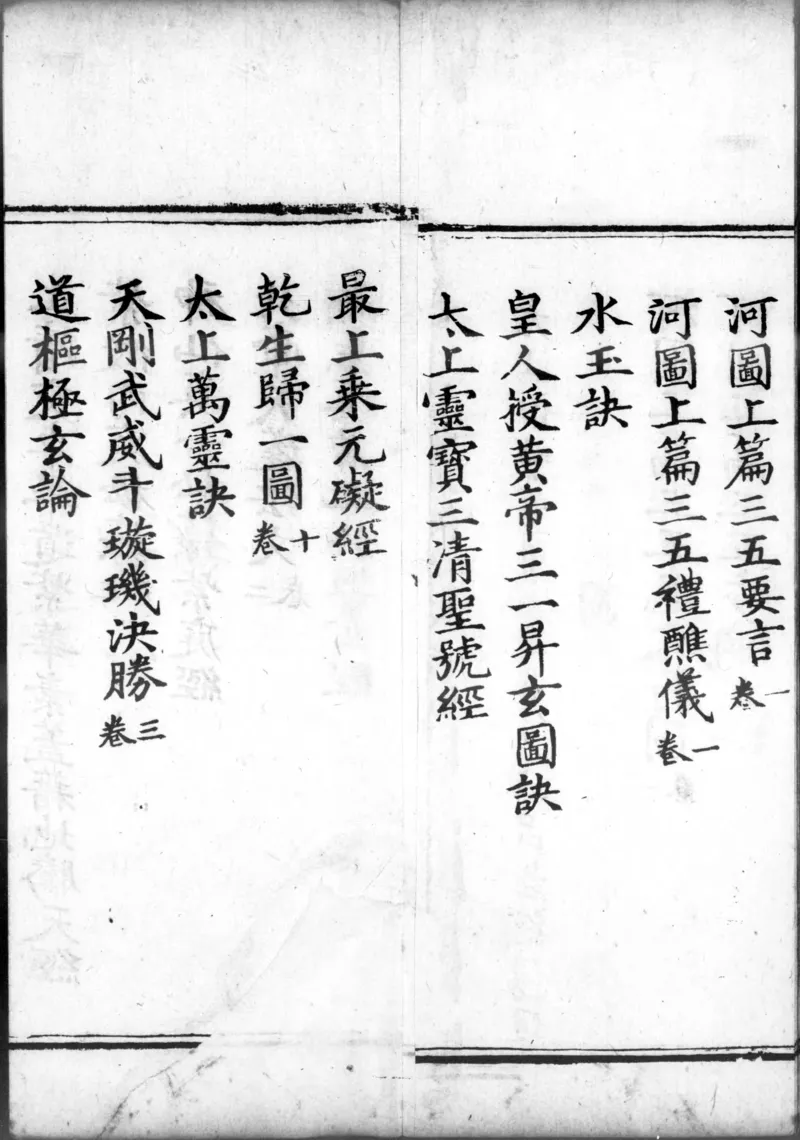 河圖上篇三五要言一卷
河圖上篇三五禮醮儀一卷
水玉訣
皇人授黃帝三一昇玄圖訣
太上靈寶三清聖號經
最上乘元礙經
乾生歸一圖十卷
太上萬靈訣
天剛武威斗璇璣決勝三卷
道樞極玄論